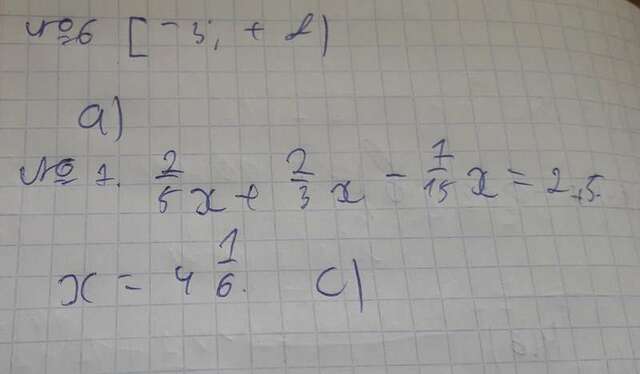 №6 [-3; + ∞)
a)
№ 1. 2/5 x + 2/3 x - 1/15 x = 2,5.
x = 4 1/6. c)